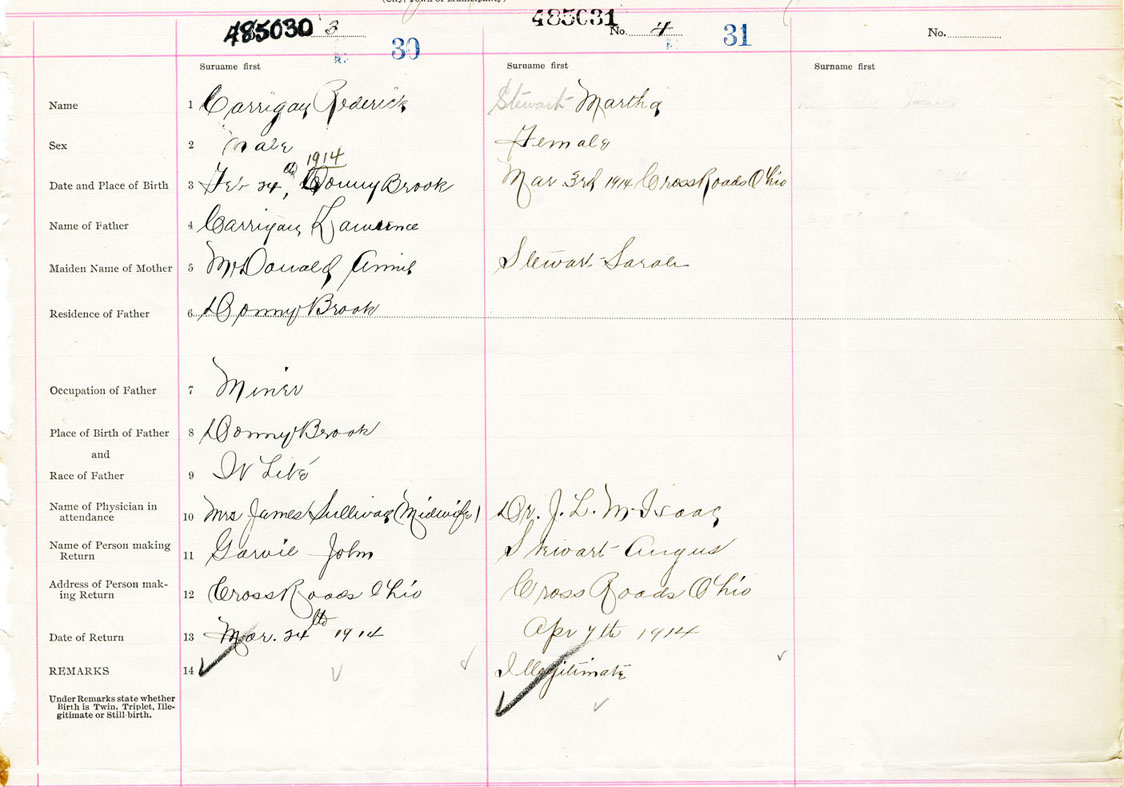 485030 3 30
485031 No. 4 31
No.
Surname first Surname first Surname first
Name 1 Carrigan Roderick Stewart Martha
Sex 2 Male Female
1914
Date and Place of Birth 3 Feb 24th, Donny Brook Mar 3rd 1914 Cross Roads Ohio
Name of Father 4 Carrigan Lawrence
Maiden Name of Mother 5 McDonald Annie Stewart Sarah
Residence of Father 6 Donny Brook
Occupation of Father 7 Miner
Place of Birth of Father 8 Donny Brook
and
Race of Father 9 White
Name of Physician in
attendance 10 Mrs James Sullivan (Midwife) Dr. J. L. McIsaac
Name of Person making
Return 11 Garvie John Stewart Angus
Address of Person mak-
ing Return 12 Cross Roads Ohio Cross Roads Ohio
Date of Return 13 Mar. 24th 1914 Apr 7th 1914
REMARKS 14 Illegitimate
Under Remarks state whether
Birth is Twin, Triplet, Ille-
gitimate or Still-birth.